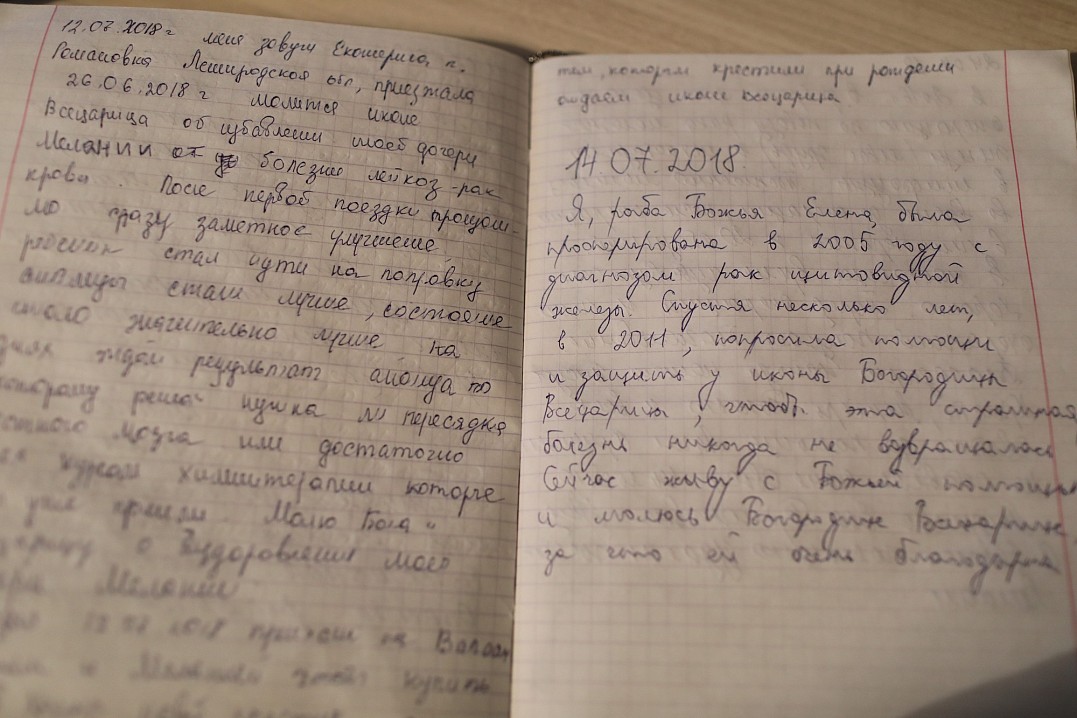 12.07.2018 г меня зовут Екатерина, п.
Романовка Ленинградской обл, приезжала
26.06.2018 г молится иконе
Всецарица об избавлении моей дочери
Мелании от болезни лейкоз-рак
крови. После первой поездки произош-
ло сразу заметное улучшение
ребенок стал идти на поправку
анализы стали лучше, состояние
стало значительно лучше на
днях ждем результат анализа по
которому решат нужна ли пересадка
костного мозга или достаточно
курсам химиотерапии которые
уже прошли. Молю Бога и
о выздоровлении моей
Мелании
2018 приехали на Валаам
и Меланией чтоб купить
тем, которым крестили при рождении
отдаем иконе всецарица
14.07.2018
Я, раба Божья Елена, была
прооперирована в 2005 году с
диагнозом рак щитовидной
железы. Спустя несколько лет,
в 2011, попросила помощи
и защиты у иконы Богородицы
Всецарицы, чтоб эта страшная
болезнь никогда не возвращалась
Сейчас живу с Божьей помощью
и молюсь Богородице Всецарице,
за что ей очень благодарна